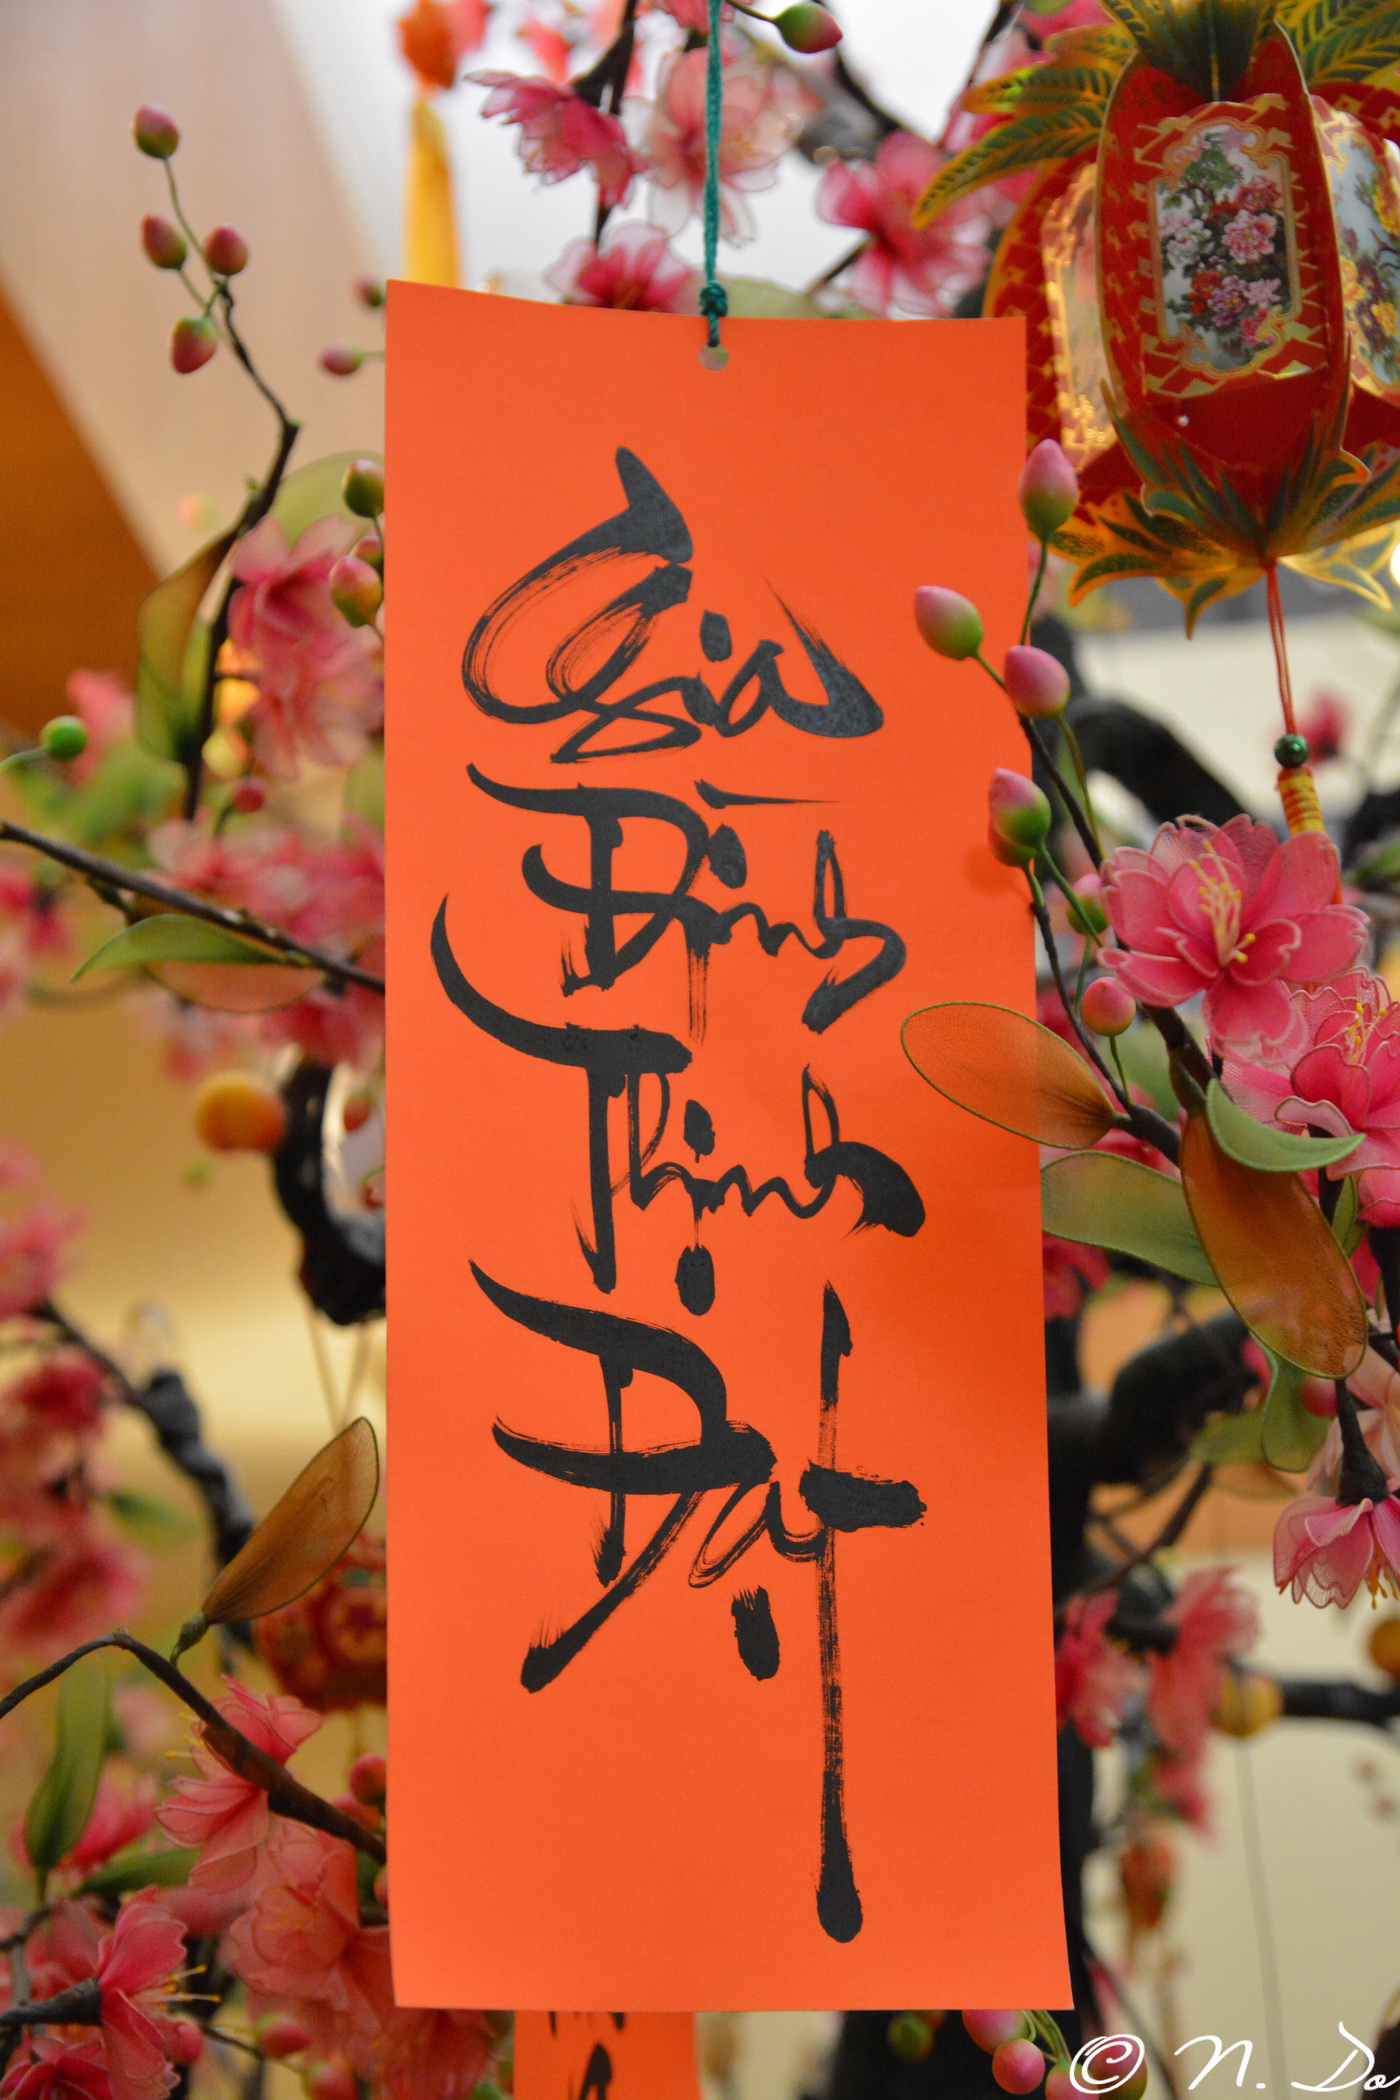 Gia
Đình
Thịnh
Đạt
© N. Do